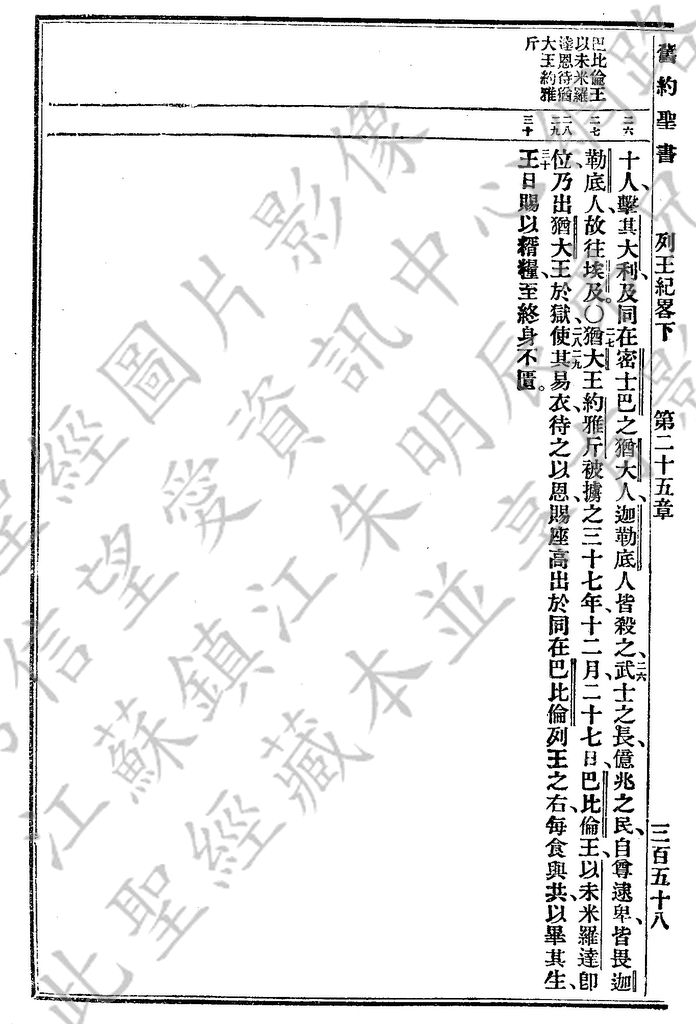 舊約聖書 列王紀畧下 第二十五章 三百五十八
巴比倫王
以未米羅
達恩待猶
大王約雅
斤
二六
二七
二八
二九
三十
十人、擊其大利、及同在密士巴之猶大人、迦勒底人、皆殺之、二六武士之長、億兆之民、自尊逮卑、皆畏迦
勒底人、故往埃及。〇二七猶大王約雅斤被擄之三十七年、十二月二十七日、巴比倫王以未米羅達卽
位、乃出猶大王於獄、二八使其易衣、二九待之以恩、賜座高出於同在巴比倫列王之右、每食與共、以畢其生、
三十王日賜以糈糧、至終身不匱。
聖經圖片影像
信望愛資訊中心網路
江蘇鎮江朱明辰
此聖經藏本並享有影